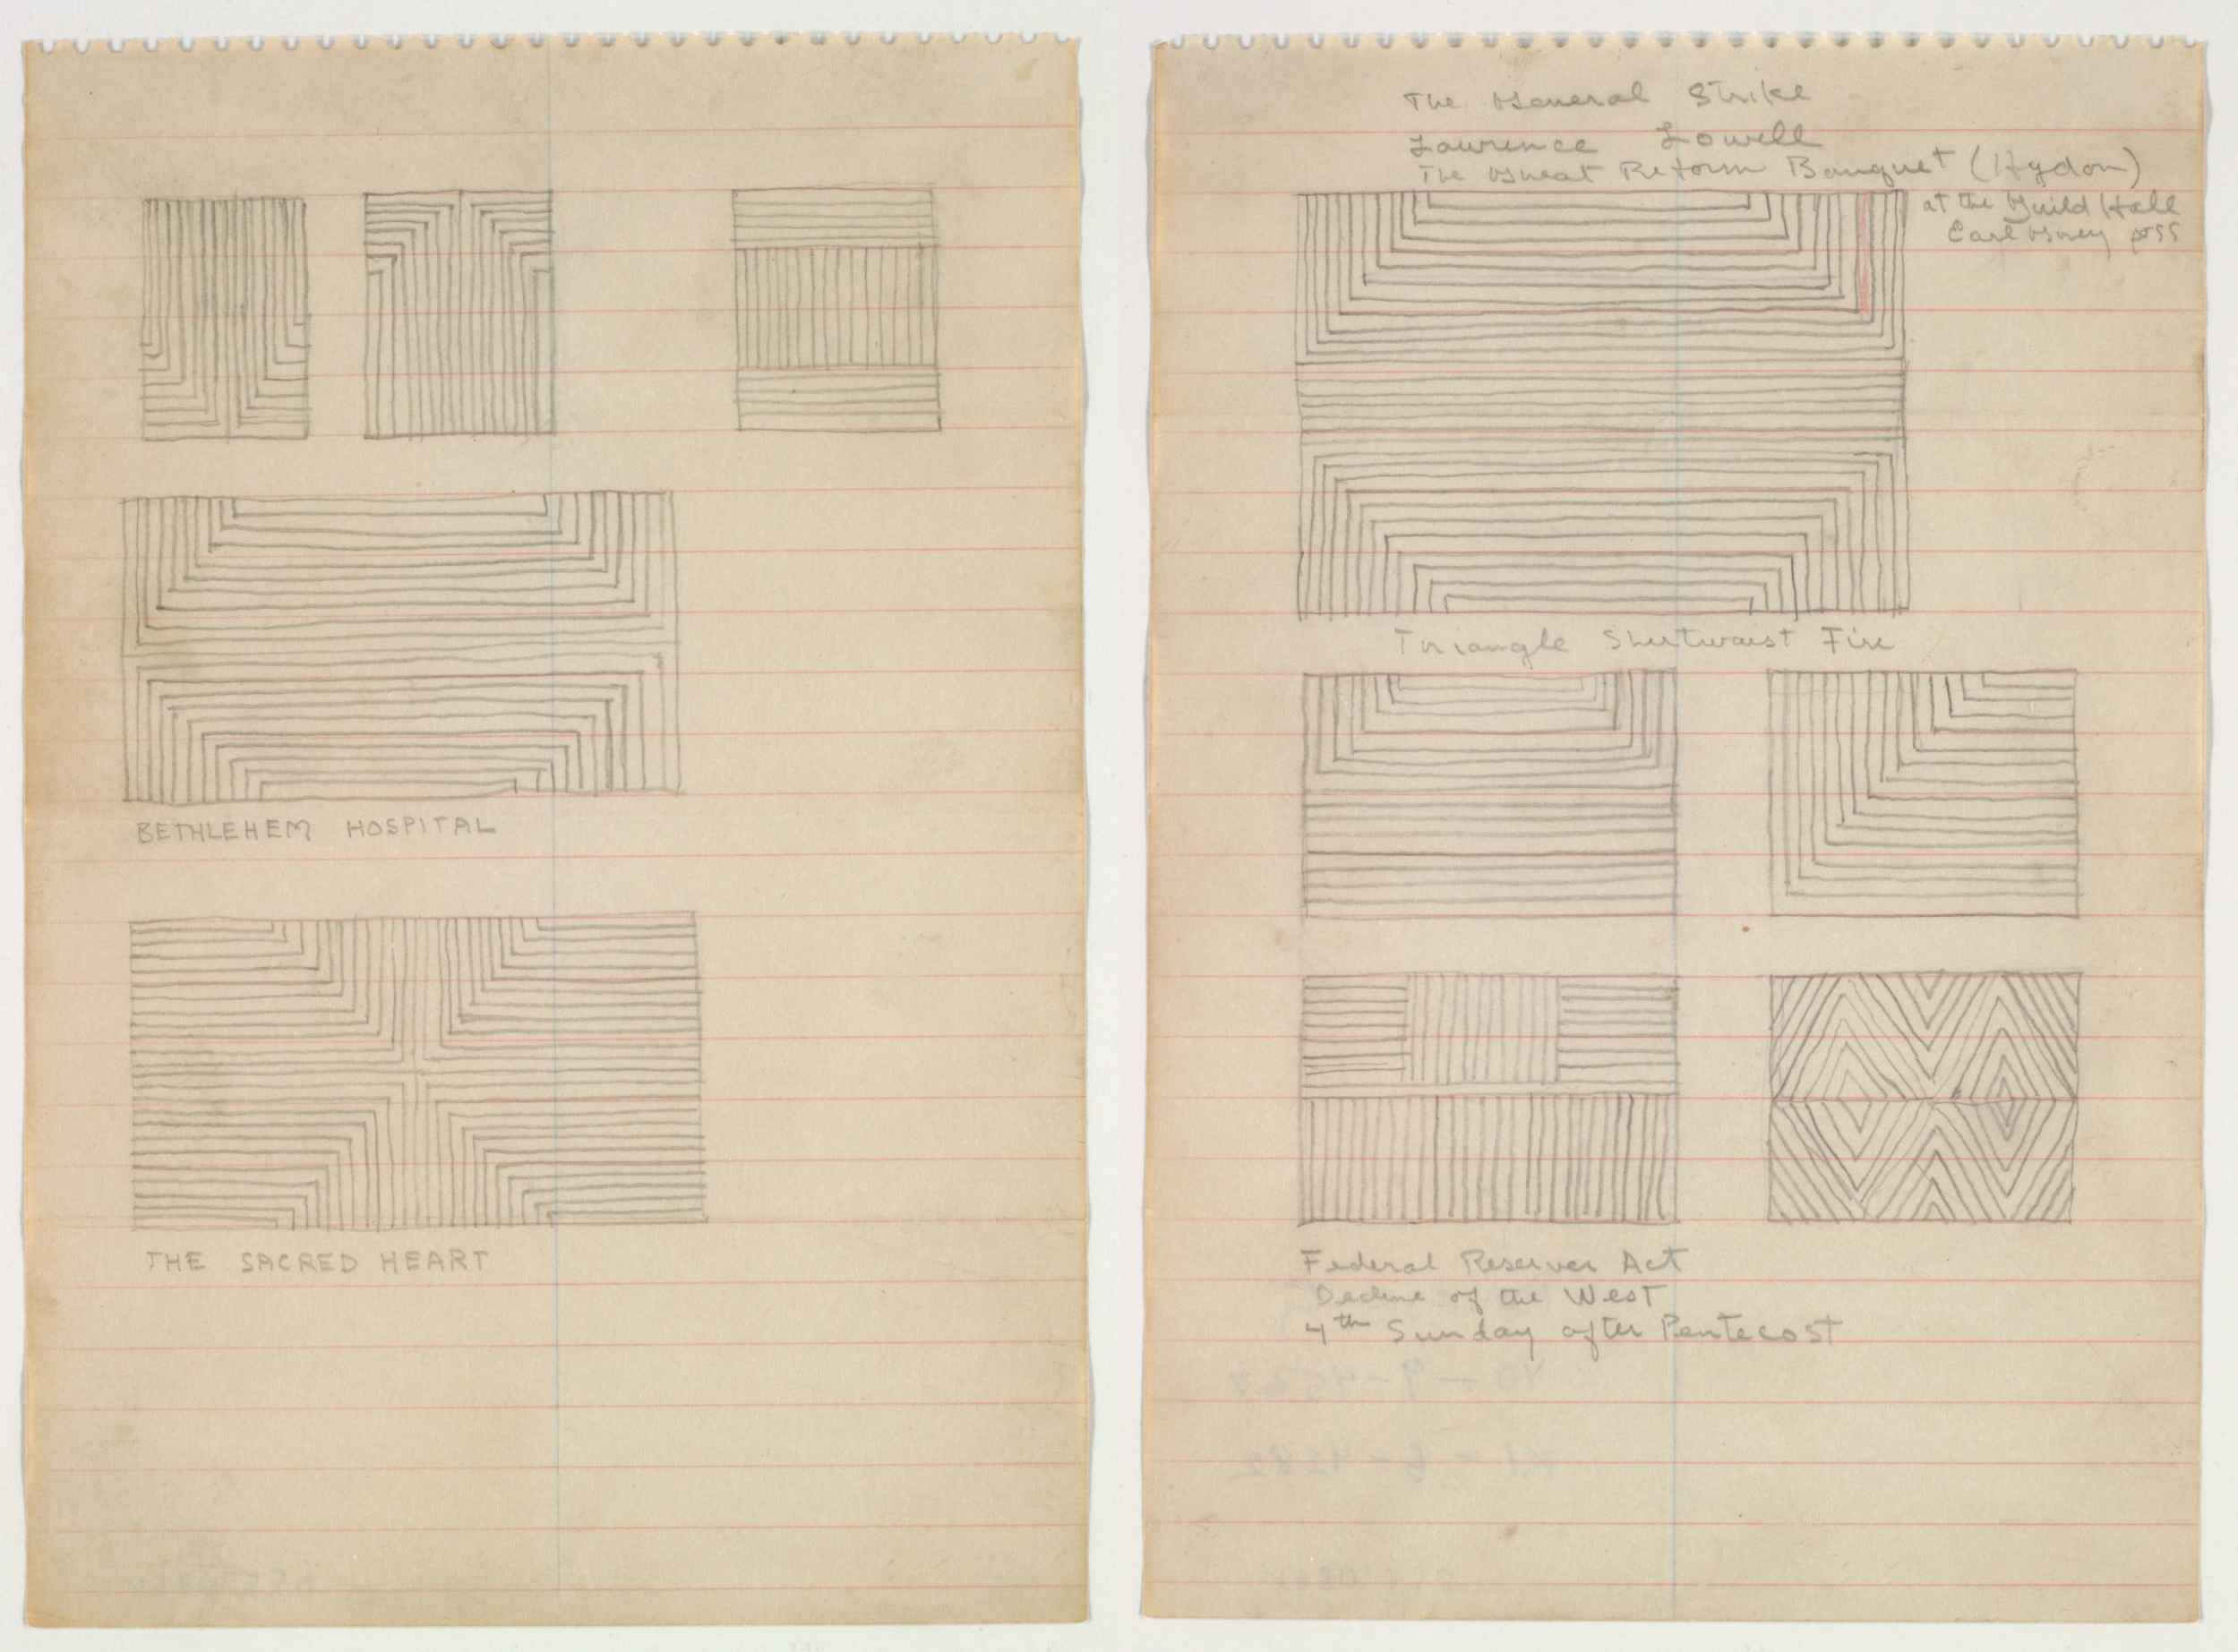 BETHLEHEM HOSPITAL
THE SACRED HEART
The General Strike
Lawrence Lowell
The Great Reform Banquet (Hydon)
at the Guild Hall
Earl Grey
Triangle Shirtwaist Fire
Federal Reserver Act
Decline of the West
4th Sunday after Pentecost